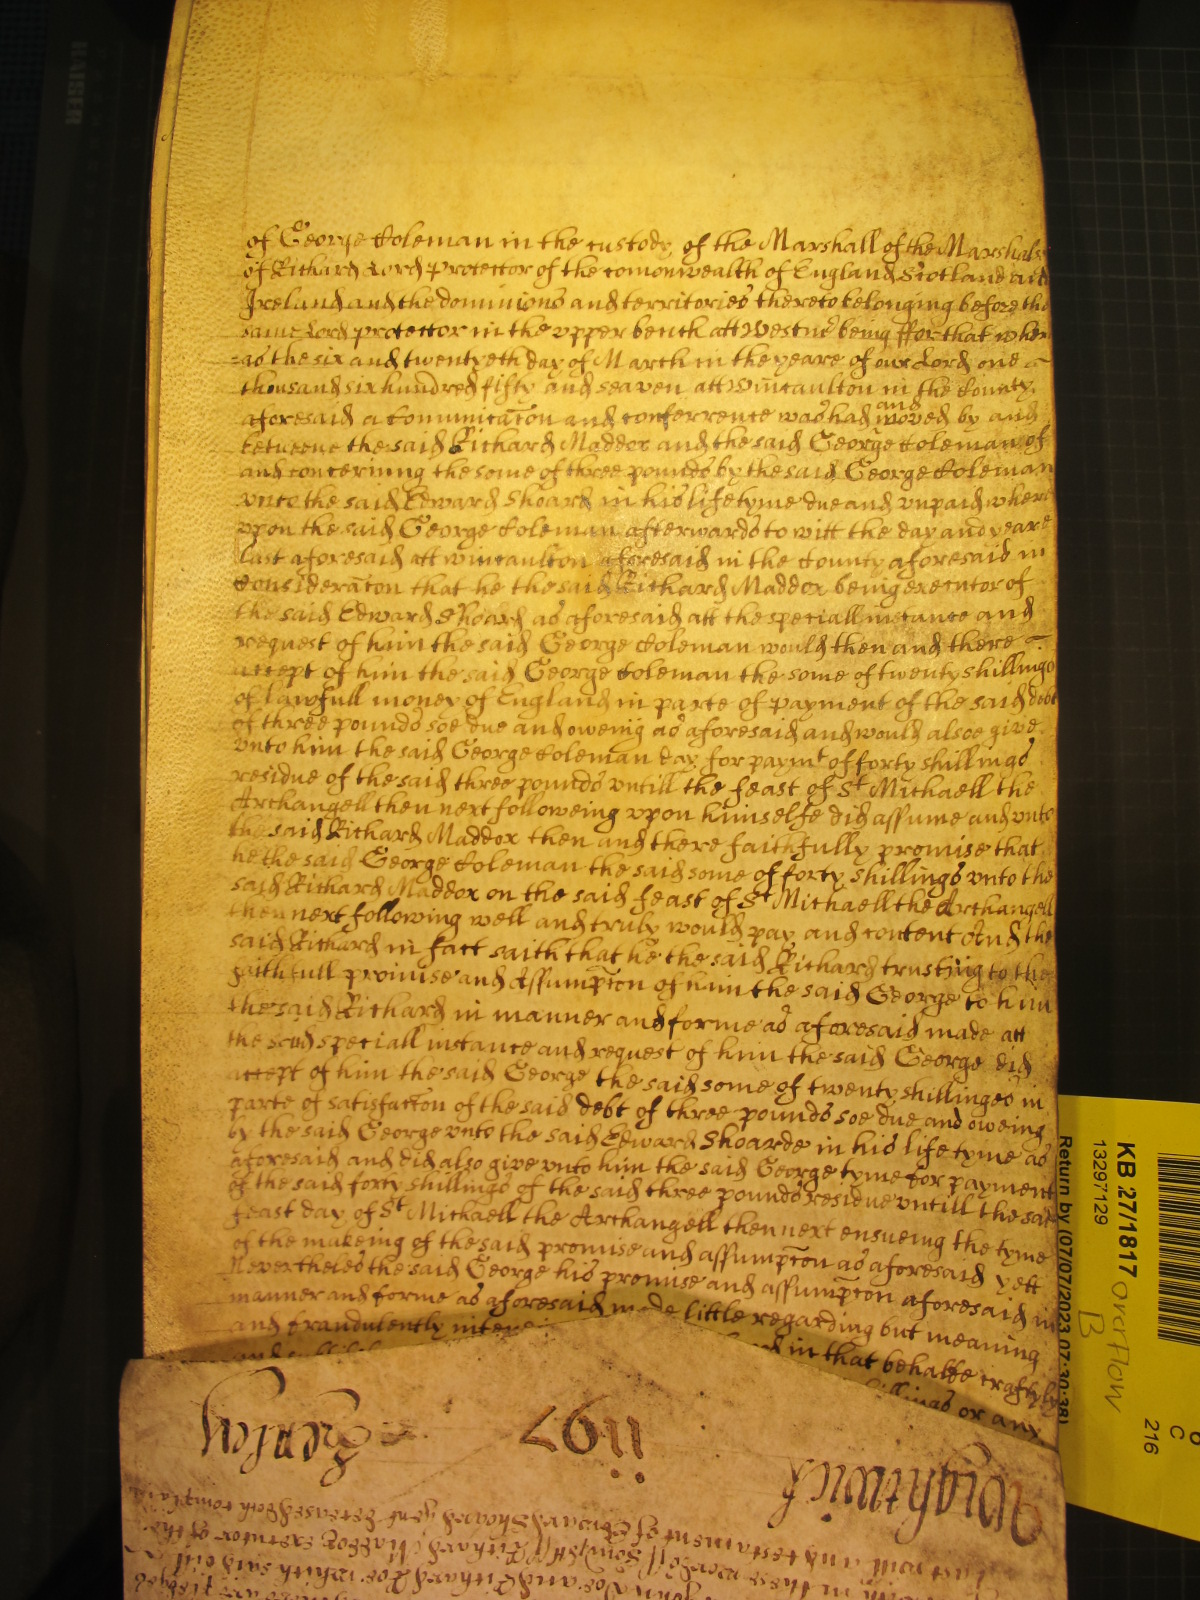 of George Coleman in the custody of the Marshall of the Marshals
of Richard Lord Protector of the comonwealth of England Scotland and
Ireland and the dominions and territories thereto belonging before the
same Lord protector in the vpper bench att Westmr being ffor that wher
as the six and twentyeth day of March in the yeare of our Lord one
thousand six hundred fifty and seaven att Wincaulton in the County
aforesaid a Communicacon and conferrence was had and moved by and
betweene the said Richard Maddox and the said George Coleman of
and concerning the some of three pounds by the said George Coleman
vnto the said Edward Shoard in his lifetyme due and vnpaid where
vpon the said George Coleman afterwards to witt the day and yeare
last aforesaid att wincaulton aforesaid in the County aforesaid in
Consideracon that he the said Richard Maddox being executor of
the said Edward Shoard as aforesaid att the speciall instance and
request of him the said George Coleman would then and there
accept of him the said George Coleman the some of twenty shillings
of lawfull money of England in parte of payment of the said debt
of three pounds soe due and oweing as aforesaid and would alsoe give
vnto him the said George Coleman day for paymt of forty shillings
residue of the said three pounds vntill the feast of St Michaell the
Archangell then next followeing vpon himselfe did assume and vnto
the said Richard Maddox then and there faithfully promise that
he the said George Coleman the said some of forty shillings vnto the
said Richard Maddox on the said feast of St Michaell the Archangell
then next following well and truly would pay and content And the
said Richard in fact saith that he the said Richard trusting to the
faithfull promise and Assumpcon of him the said George to him
the said Richard in manner and forme as aforesaid made att
the said speciall instance and request of him the said George did
accept of him the said George the said some of twenty shillinges in
parte of satisfaccon of the said debt of three pounds soe due and oweing
by the said George vnto the said Edward Shoarde in his life tyme as
aforesaid and did also give vnto him the said George tyme for payment
of the said forty shillings of the said three pounds residue vntill the said
feast day of St Michaell the Archangell then next ensueing the tyme
of the makeing of the said promise and assumpcon as aforesaid yett
Nevertheles the said George his promise and assumpcon aforesaid in
manner and forme as aforesaid made little regarding but meaning
and fraudulently
in that behalfe craftyly
or any
Wightwick
1197
last will and testament of Edward Shoard gent deceased
in these words Somst Richard Maddox executor of the
John Doe and Richard Roe which said bill
KAISER
KB 27/1817
13297129
Return by 07/07/2023 07:30:38
OVERFLOW
B
C
216